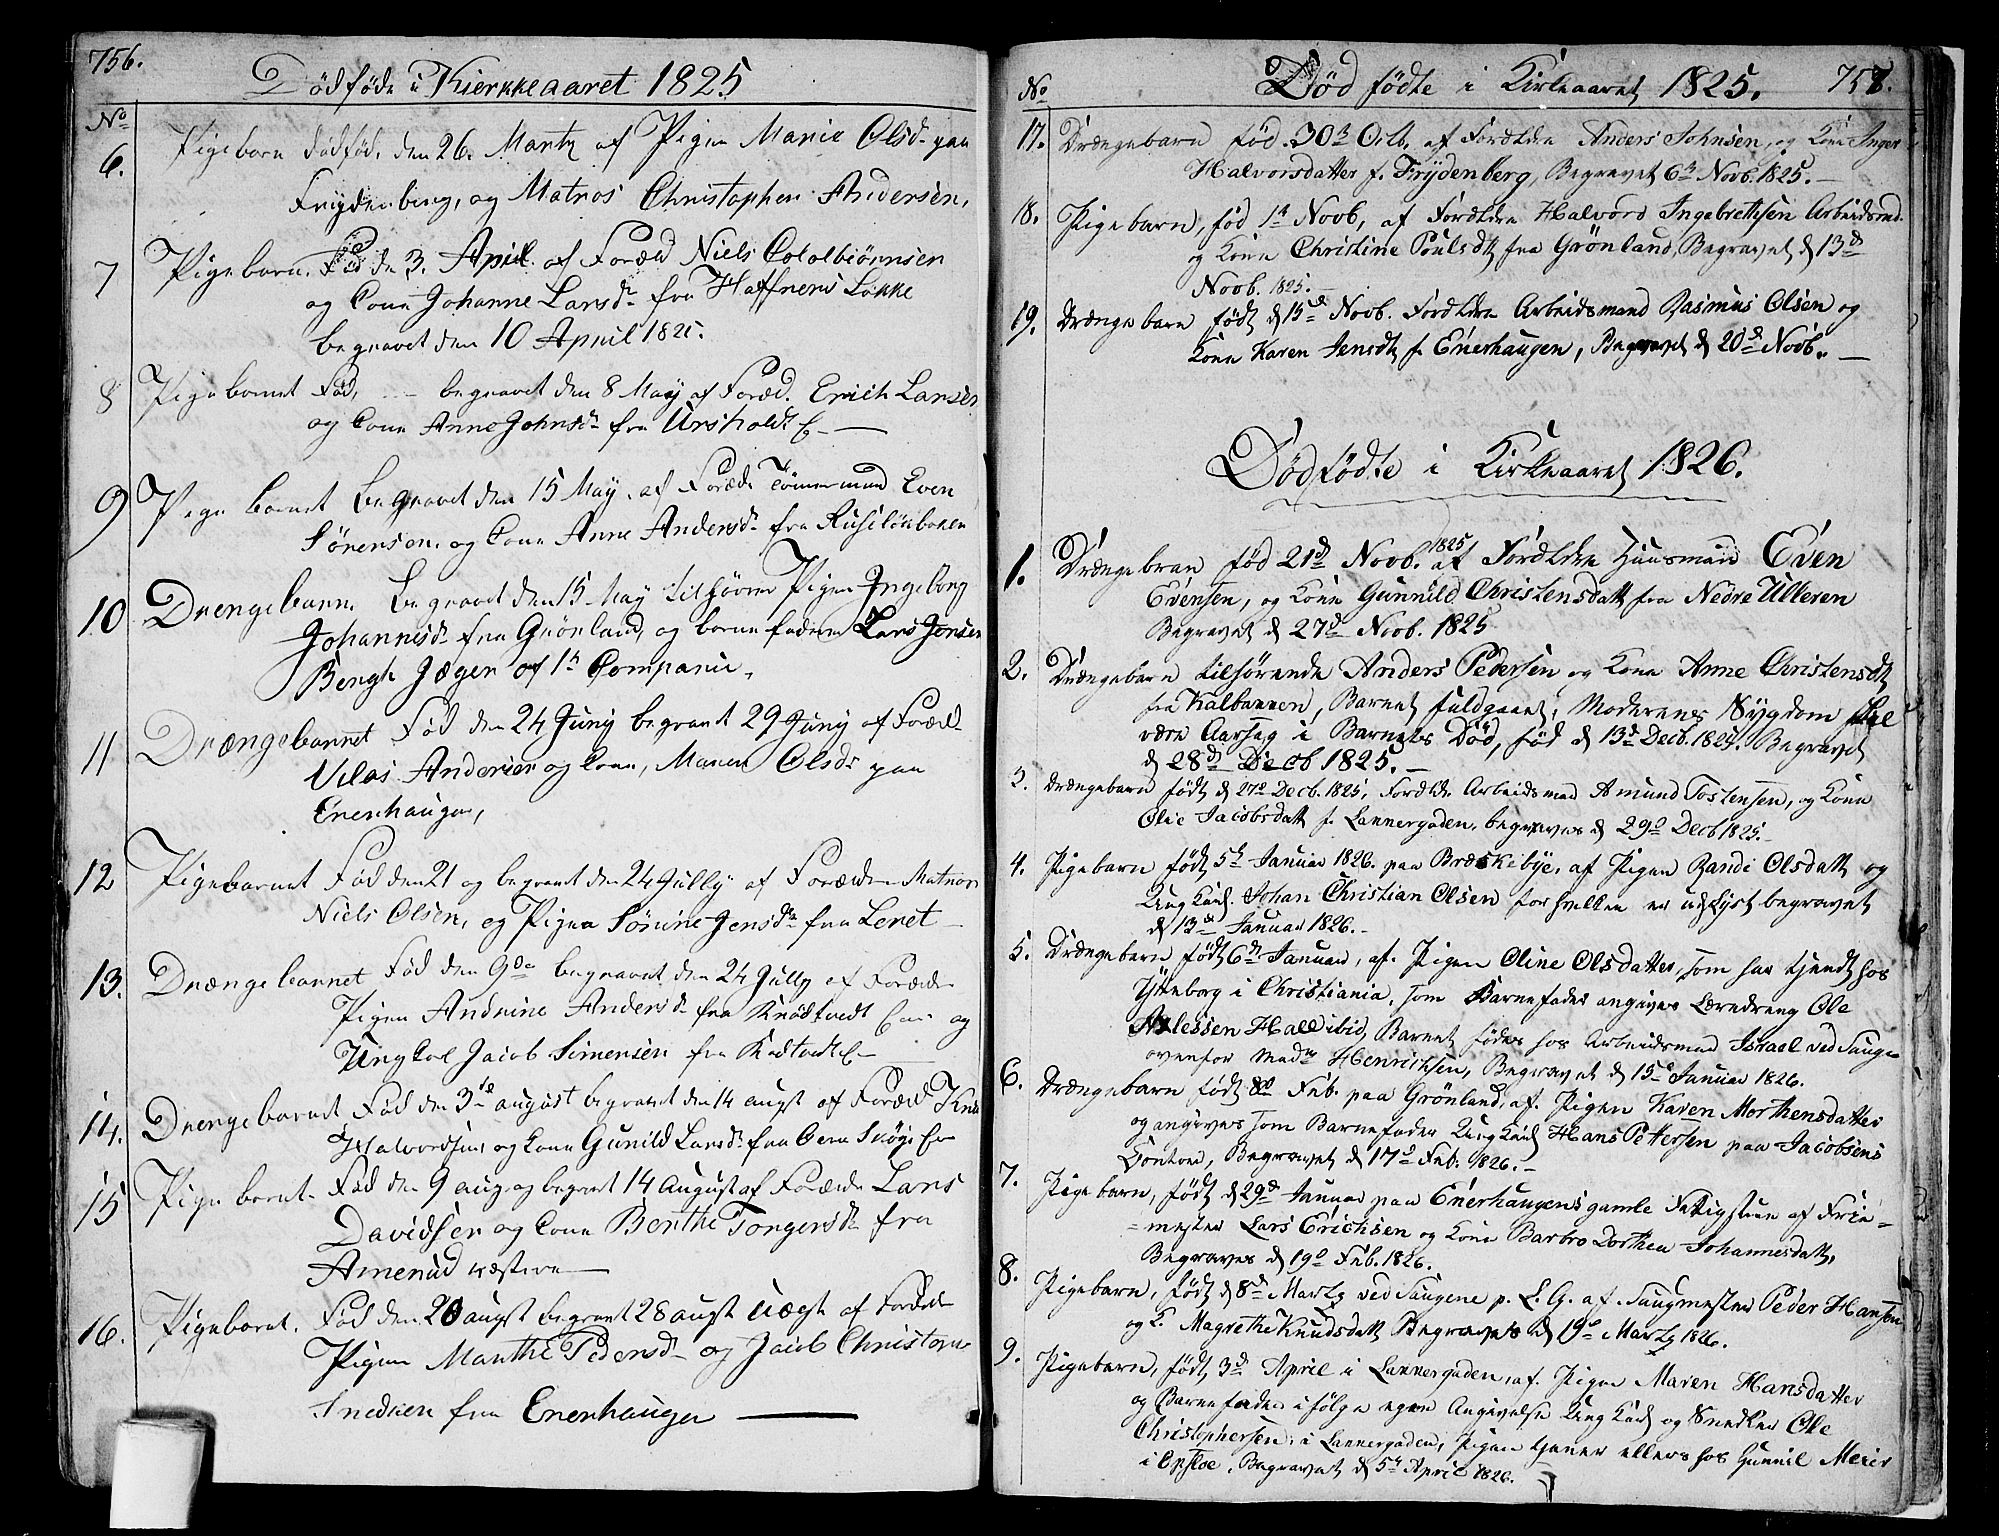 756.
Dödföde i Kierkkeaaret 1825
No
6. Pigebarn dödföd, den 26. Martz af Pigen Marie Olsd. paa
Frydenberg, og Matros Christopher Andersen,
7 Pigebarn. Föd den 3. April af Foræld Niels Colbiörnsen
og Cone Johanne Larsd. fra Haffners Lökke
begravet den 10 April 1825.
8 Pigebarnet Föd, begravet den 8 May af Foræd. Erich Larsen
og Cone Anne Johnsd. fra Ursholdt E.
9 Pige barnet begravet den 15 May af Foræd. Tömermand Even
Sörensen, og Cone Anne Andersd. fra
10 Drengebarn begravet den 15 May tilhörer Pigen Ingeborg
Johannisd. fra Grönland, og barne faderen Lars Jensen
Bergh Jæger af 1h Compani.
11 Drængebarnet Föd den 24 Juny begravet 29 Juny af Foræld
Andersen og Cone, Maren Olsd. paa
Enerhaugen,
12 Pigebarnet Föd den 21 og begravet den 24 Jully af Foræld Matros
Niels Olsen, og Pigen Sörine Jensd. fra Leret
13. Drængebarnet Föd den 9de begravet den 24 Jully af Foræld
Pigen Andrine Andersd. fra og
Ungkal Jacob Simensen fra
14. Drengebarnet Föd den 3de august begravet den 14 augst af Foræld
Halvordsen og Cone Gunild Larsd. fra
15 Pige barnet Föd den 9 aug og begravet 14 August af Foræld Lars
Davidsen og Cone Berthe Torgersd. fra
Amerud væstre
16. Pigebarnet. Föd den 20 augst begravet 28 augst uægt af Foræld
Pigen Marthe Pedersd. og Jacob
Snedker fra Enerhaugen
No Död födte i Kirkeaaret 1825. 757.
17. Drængebarn föd 30h Octb. af Forældre Anders Johnsen, og Kone Inger
Halvorsdatter f. Frydenberg, Begravet 6h Novb. 1825.
18. Pigebarn, föd 1h Novb, af Forældre Halvord Ingebrettsen Arbeidsmd.
og Kone Christine Poulsdt fra Grönland, Begravet d 13de
Novb. 1825.
19. Drængebarn födt d 15de Novb. Forældre Arbeidsmand Rasmus Olsen og
Kone Karen Jensdt f. Enerhaugen, Begravet d 20de Novb.
Dödfödte i Kirkeaaret 1826.
1. Drængebran föd 21d Novb. 1825 af Forældre Huusmand Even
Evensen, og Kone Gunnild Christensdatt fra Nedre Ulleren
Begravet d 27d Novb. 1825
2. Drængebarn tilhörende Anders Pedersen og Kone Anne Christensdt
fra Kalbannen, Barnet fuldgaaet, Moderens Sygdom skal
være Aarsag i Barnets Död, föd d 13d Decb. 1825. Begravet
d 28d Decb 1825.
3. Drængebarn födt d 27d Decb. 1825, Forældre Arbeidsmand Amund Tostensen, og Kone
Olie Jacobsdatt f. Lannergaden, begraves d 29d Decb 1825.
4. Pigebarn födt 5h Januar 1826. paa Bræskebye, af Pigen Randi Olsdatt og
Ung Karl. Johan Christian Olsen for hvilken er udlyst begravet
d 13de Januar 1826.
5. Drængebarn födt 6d Januar, af Pigen Oline Olsdatter, som har tjendt hos
Ytteborg i Christiania, som Barnefader angives Læredreng Ole
Hall ibid, Barnet födes hos Arbeidsmand Israel ved Sauge
ovenfor Madm Henrichsen, Begravet d 15d Januar 1826.
6. Drængebarn födt 8d Feb. paa Grönland, af Pigen Karen Morthensdatter
og angives som Barnefader Ung Karl Hans Pettersen paa Jacobsens
Contoir, Begravet d 17d Feb. 1826.
7. Pige barn, födt d 29d Januar paa Enerhaugens gamle Fattigstue af Frie=
=mester Lars Erichsen og Kone Barbro Dorthea Johannesdatt,
Begraves d 19d Feb. 1826.
8. Pigebarn, födt d 8d Martz ved Saugene p. L. G. af Saugmester Peder Hansen
og K. Magrethe Knudsdatt Begraves d 19d Martz 1826.
9. Pigebarn, födt 3d April i Lannergaden, af Pigen Maren Hansdatter
og Barnefader ifölge egen Angivelse Ung Karl og Snedker Ole
Christophersen, i Lannergaden, Pigen tjener ellers hos Gunnil Meier
i Opsloe, Begravet d 5h April 1826.